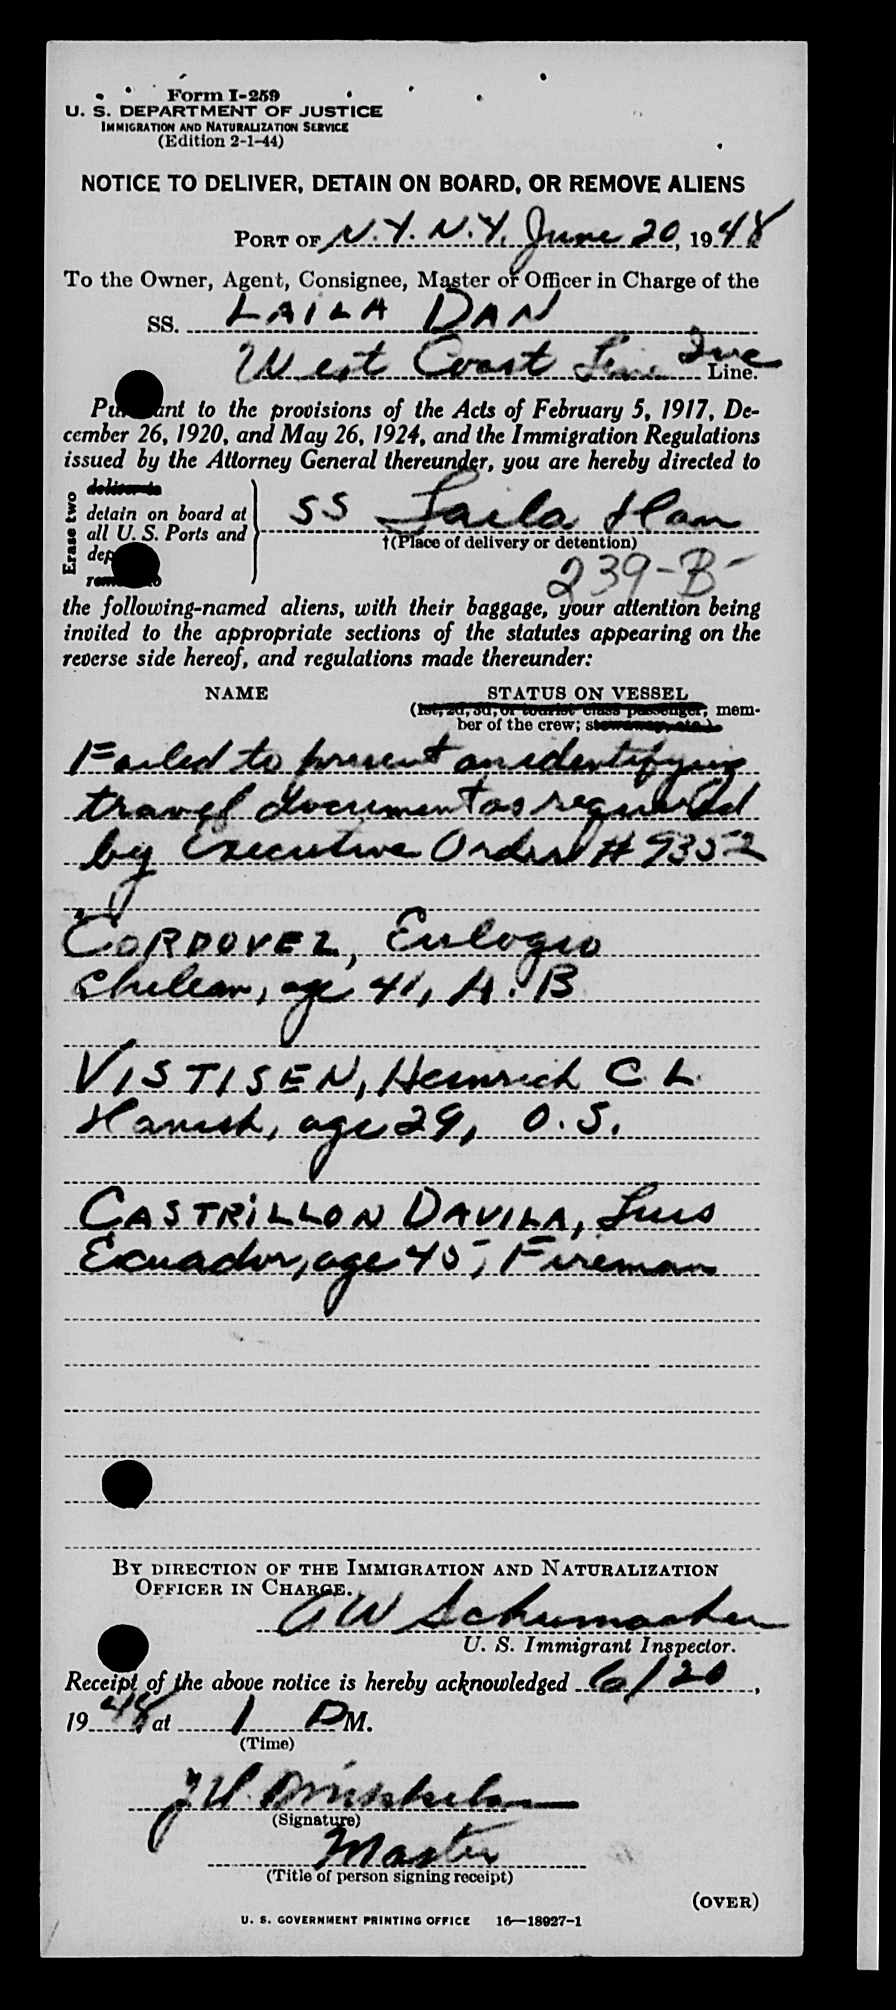 Form I-259
U. S. DEPARTMENT OF JUSTICE
IMMIGRATION AND NATURALIZATION SERVICE
(Edition 2-1-44)
NOTICE TO DELIVER, DETAIN ON BOARD, OR REMOVE ALIENS
PORT OF N.Y. N.Y. June 20, 1948
To the Owner, Agent, Consignee, Master or Officer in Charge of the
SS. LAILA DAN
West Coast Line Inc Line.
Pursuant to the provisions of the Acts of February 5, 1917, De-
cember 26, 1920, and May 26, 1924, and the Immigration Regulations
issued by the Attorney General thereunder, you are hereby directed to
Erase two
deliver to
detain on board at
all U. S. Ports and
dep
remove to
SS Laila Dan
†(Place of delivery or detention)
239-B
the following-named aliens, with their baggage, your attention being
invited to the appropriate sections of the statutes appearing on the
reverse side hereof, and regulations made thereunder:
NAME STATUS ON VESSEL
(1st, 2d, 3d, or tourist class passenger, mem-
ber of the crew; stowaway, etc.)
Failed to present an identifying
travel document as required
by Executive Order # 9352
CORDOVEZ, Eulogio
Chilean, age 41, A.B
VISTISEN, Heinrich C L
Danish, age 29, O.S.
CASTRILLON DAVILA, Luis
Ecuador, age 45, Fireman
BY DIRECTION OF THE IMMIGRATION AND NATURALIZATION
OFFICER IN CHARGE.
A W Schumacher
U. S. Immigrant Inspector.
Receipt of the above notice is hereby acknowledged 6/20,
1948, at 1 PM.
(Time)
(Signature)
Master
(Title of person signing receipt)
(OVER)
U. S. GOVERNMENT PRINTING OFFICE 16—18927-1